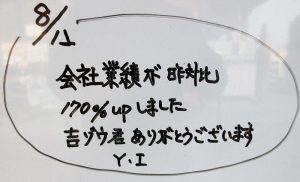 8/12
会社業績が昨対比
170%upしました
吉ゾウ君ありがとうございます
Y.I